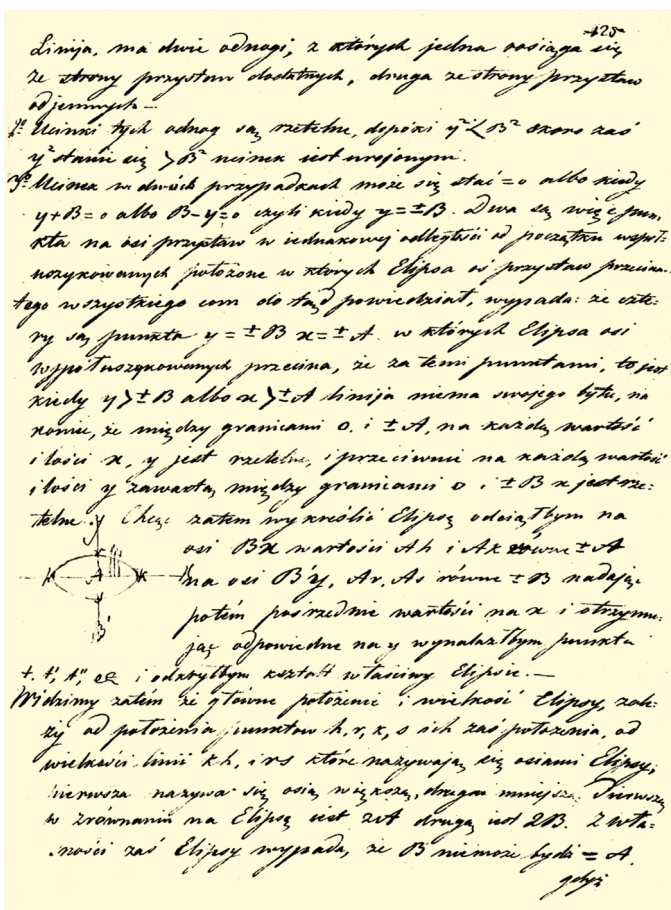 125
Linija, ma dwie odnogi, z których jedna rosiąga się
ze strony przystaw dodatnych, druga ze strony przystaw
odjemnych —
2º Ucinki tych odnog są rzetelne, dopóki y² < B² skoro zaś
y² stanie się > B² ucinek iest urojonym.
3º Ucinek w dwóch przypadkach może się stać = 0 albo kiedy
y + B = 0 albo B - y = 0 czyli kiedy y = ± B. Dwa są więc pun,
kta na osi przystaw w iednakowej odległości od początku współ,
uszykowanych położone w których Elipsa oś przystaw przecina.
tego wszystkiego com do tąd powiedział, wypada: że czte,
ry są punkta y = ± B x = ± A. w których Elipsa osi
współuszykowanych przecina, że za temi punktami, to jest
kiedy y > ± B albo x > ± A linija niema swojego bytu, na
konie, że między granicami 0. i ± A, na każdą wartość
ilości x, y jest rzetelne, i przeciwnie na każdą wartość
ilości y zawartą między granicami 0 i ± B x jest rze,
telne. Chcąc zatem wykreślić Elipsę odciąłbym na
osi Bx wartości Ah i Ak równe ± A
na osi B'y, Ar, As równe ± B nadając
potém pośrednie wartości na x i otrzymu,
jąc odpowiedne na y wynalazłbym punkta
t. t', t'', etc i odkryłbym kształt właściwy Elipsie. —
Widzimy zatem że główne położenie i wielkość Elipsy, zale:
ży od położenia punktow h, r, k, s ich zaś położenia, od
wielkości linii kh, i rs które nazywają się osiami Elipsy;
pierwsza nazywa się osią większą, druga mniejszą. Pierwsza
w zrównaniu na Elipsę iest 2A druga iest 2B. Z wła,
sności zaś Elipsy wypada, że B niemoże bydź = A.
gdyż